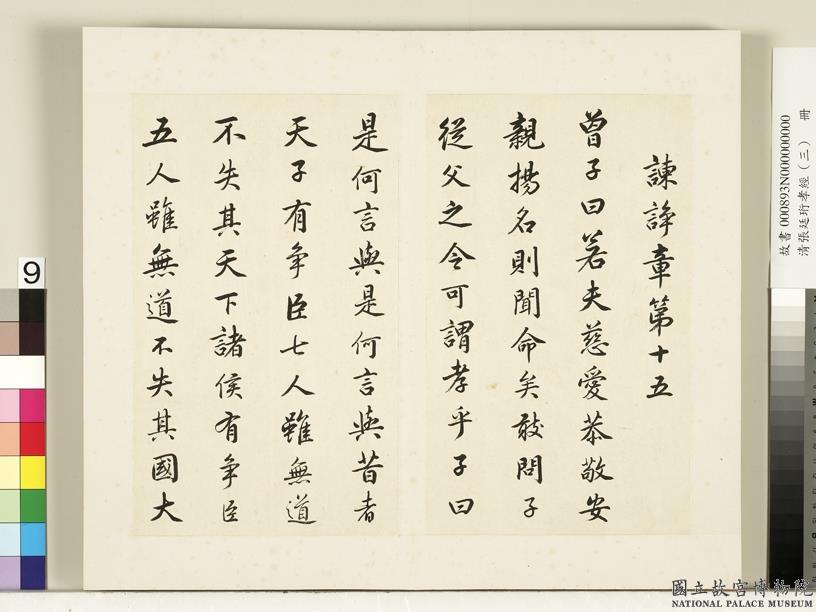 諫諍章第十五
曾子曰若夫慈愛恭敬安
親揚名則聞命矣敢問子
從父之令可謂孝乎子曰
是何言與是何言與昔者
天子有爭臣七人雖無道
不失其天下諸侯有爭臣
五人雖無道不失其國大
故書000893N000000000
清張廷珩孝經(三) 冊
9
國立故宮博物院
NATIONAL PALACE MUSEUM